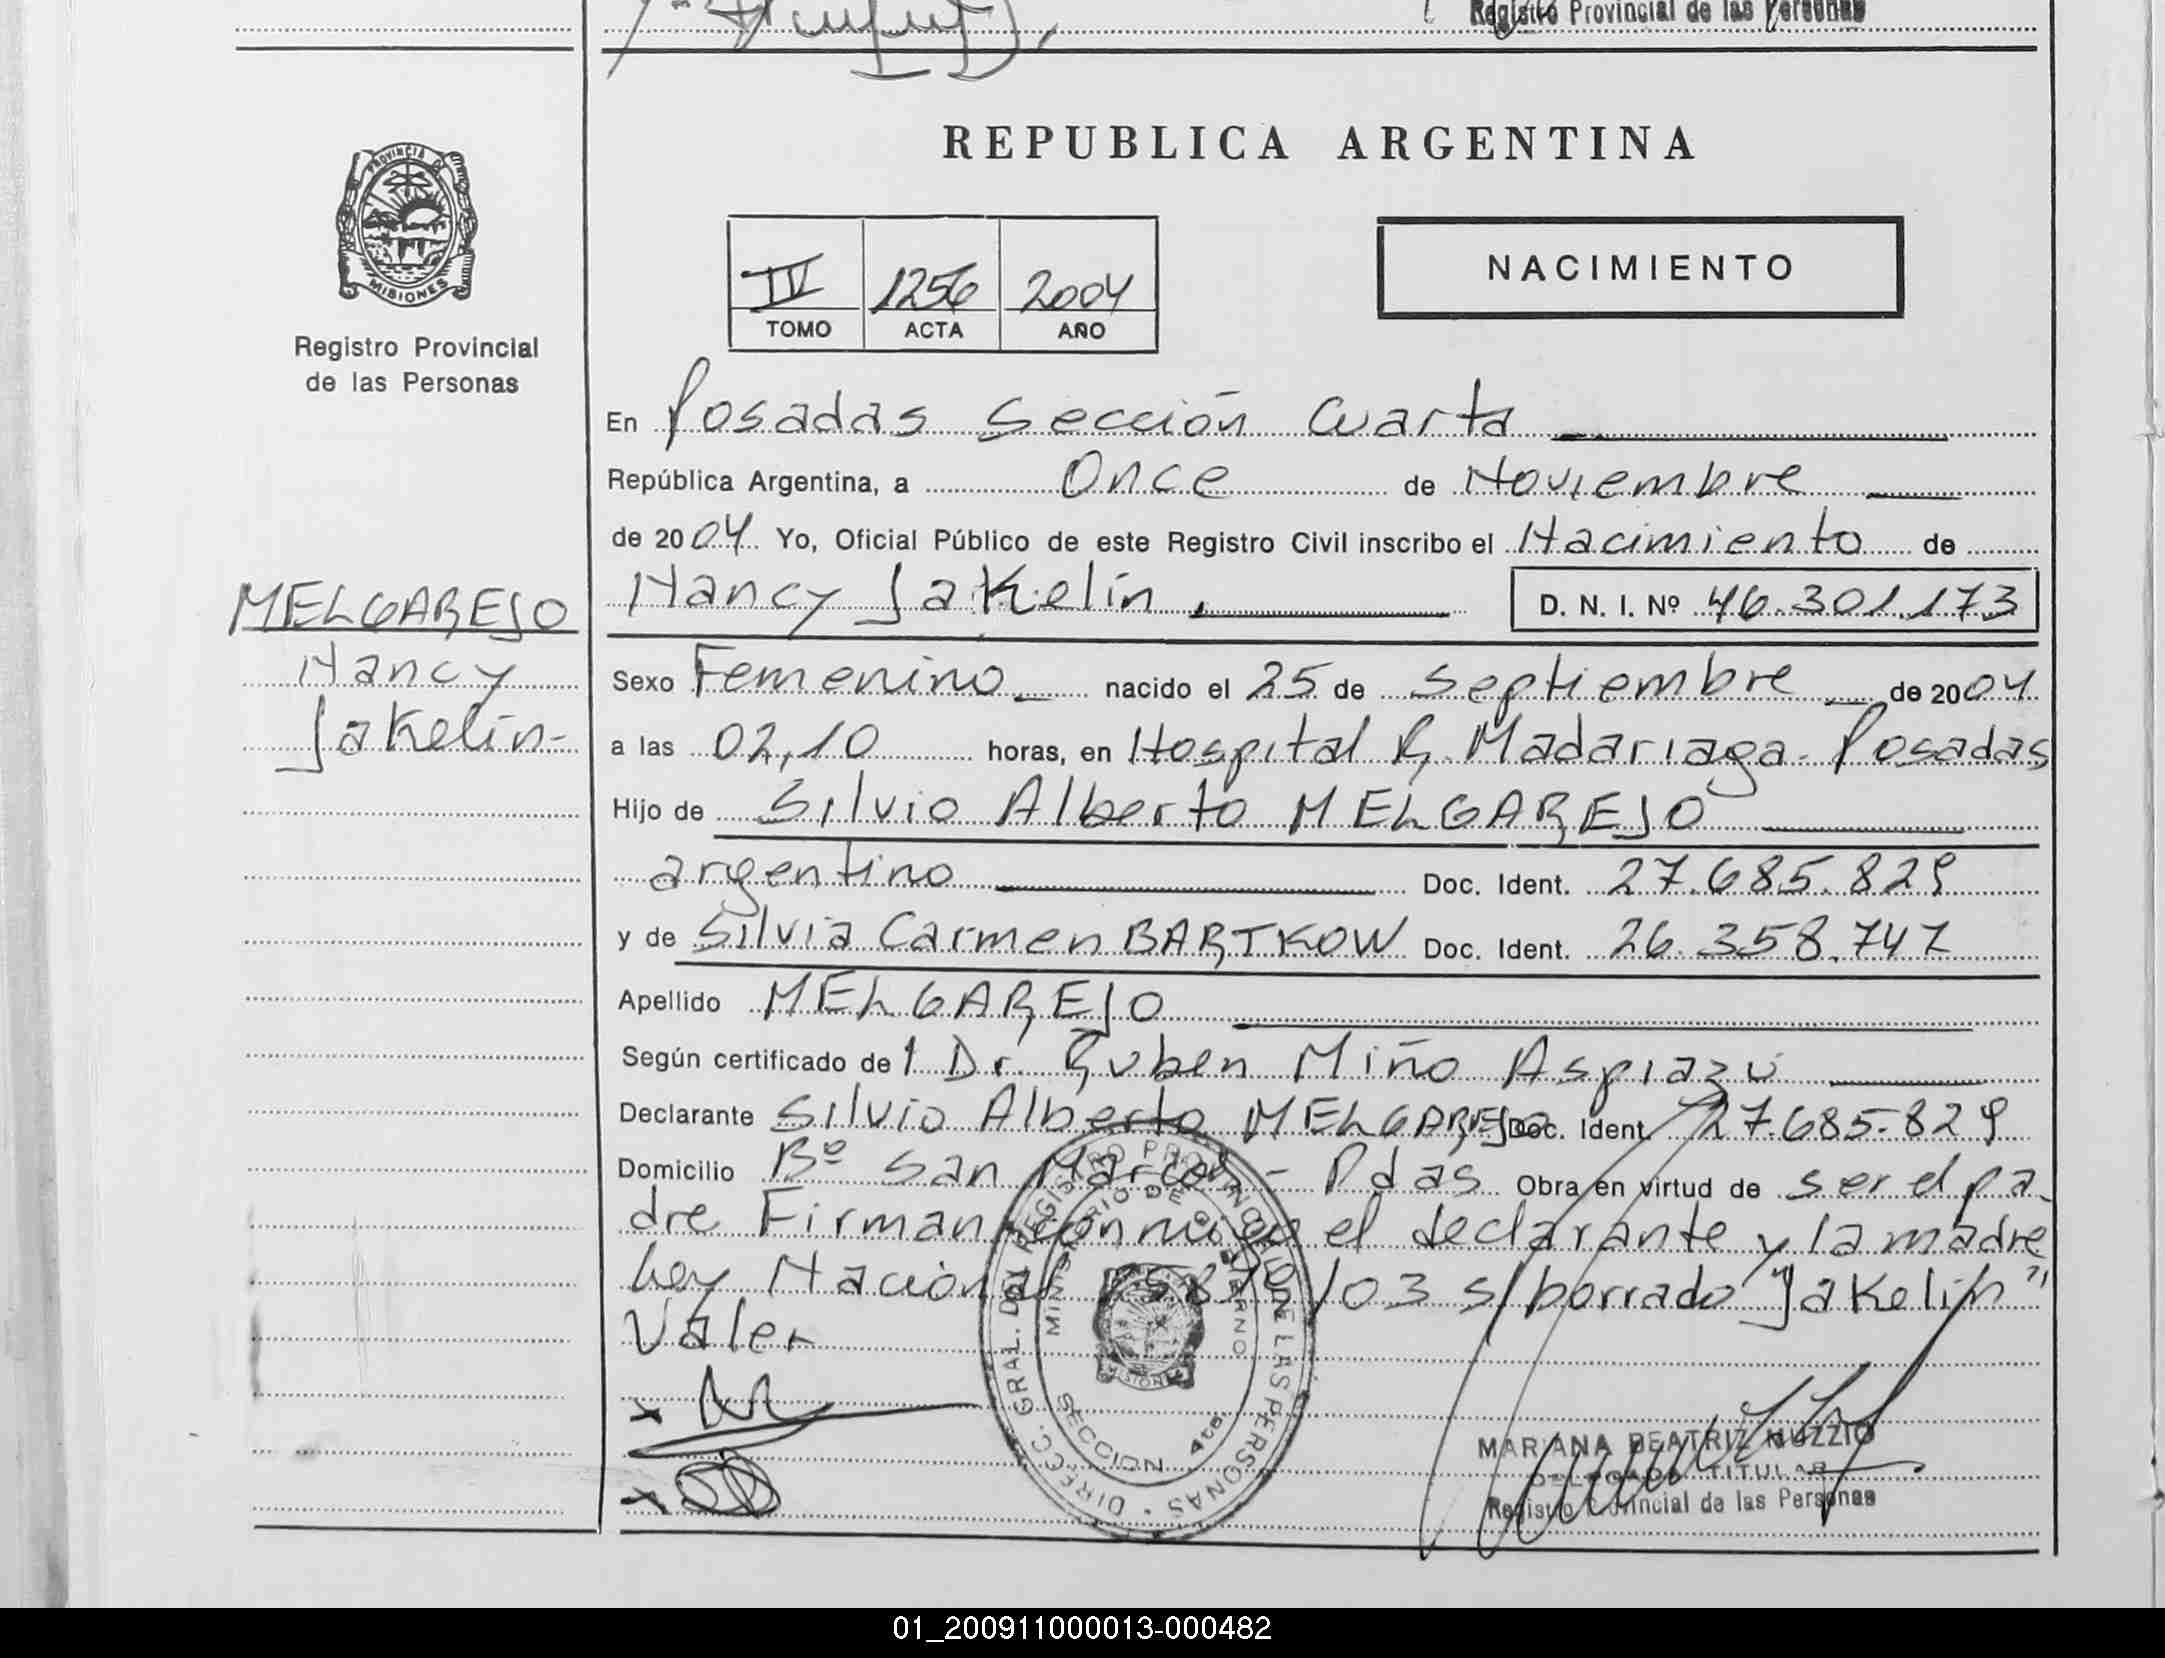 Registro Provincial de las Personas
REPUBLICA ARGENTINA
PROVINCIA DE
MISIONES
Registro Provincial
de las Personas
IV 1256 2004
TOMO ACTA AÑO
NACIMIENTO
En Posadas Sección Cuarta
República Argentina, a Once de Noviembre
de 2004 Yo, Oficial Público de este Registro Civil inscribo el Nacimiento de
Nancy Jakelin. D. N. I. Nº 46.301.173
MELGAREJO
Nancy
Jakelin-
Sexo Femenino nacido el 25 de Septiembre de 2004
a las 02,10 horas, en Hospital R. Madariaga - Posadas
Hijo de Silvio Alberto MELGAREJO
argentino Doc. Ident. 27.685.829
y de Silvia Carmen BARTKOW Doc. Ident. 26.358.747
Apellido MELGAREJO
Según certificado de l Dr. Ruben Miño Aspiazú
Declarante Silvio Alberto MELGAREJO Doc. Ident. 27.685.829
Domicilio Bº San Marcos - Pdas Obra en virtud de ser el pa-
dre Firman conmigo el declarante y la madre
Ley Nacional /03 s/borrado "Jakelin"
Vale.
DIRECC. GRAL. DEL REGISTRO PROVINCIAL DE LAS PERSONAS
MINISTERIO DE GOBIERNO
MISIONES
SECCION 4ta
MARIANA BEATRIZ NUZZIO
DELEGADA TITULAR
Registro Provincial de las Personas
01_200911000013-000482